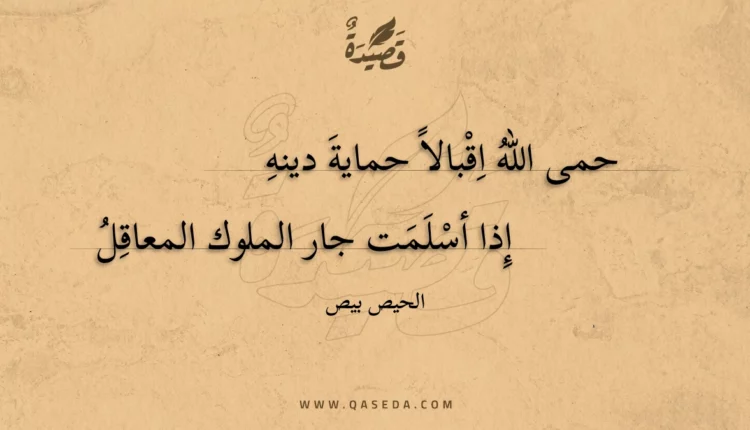 قَصِيْدَةٌ
حمى اللهُ اِقْبالاً حمايةَ دينهِ
إِذا أسْلَمَت جار الملوك المعاقِلُ
الحيص بيص
WWW.QASEDA.COM